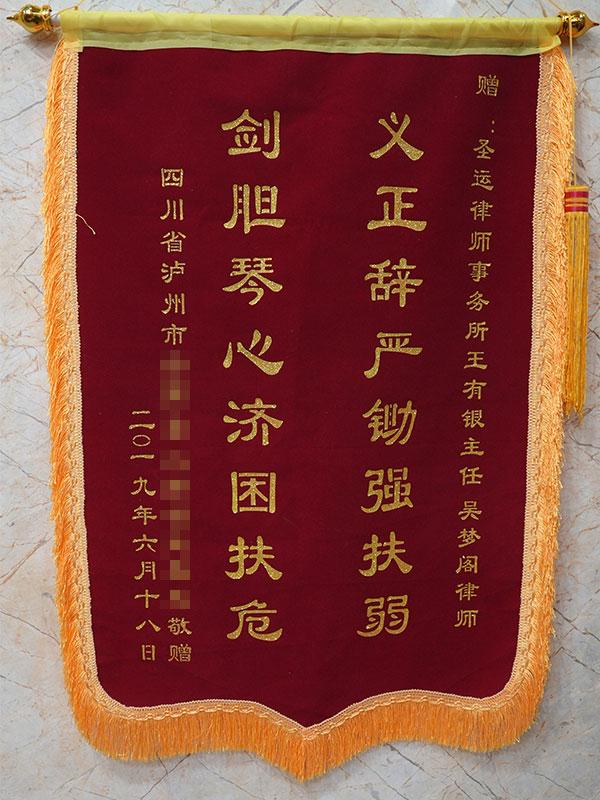 赠：圣运律师事务所王有银主任 吴梦阁律师
义正辞严锄强扶弱
剑胆琴心济困扶危
四川省泸州市
敬赠
二〇一九年六月十八日